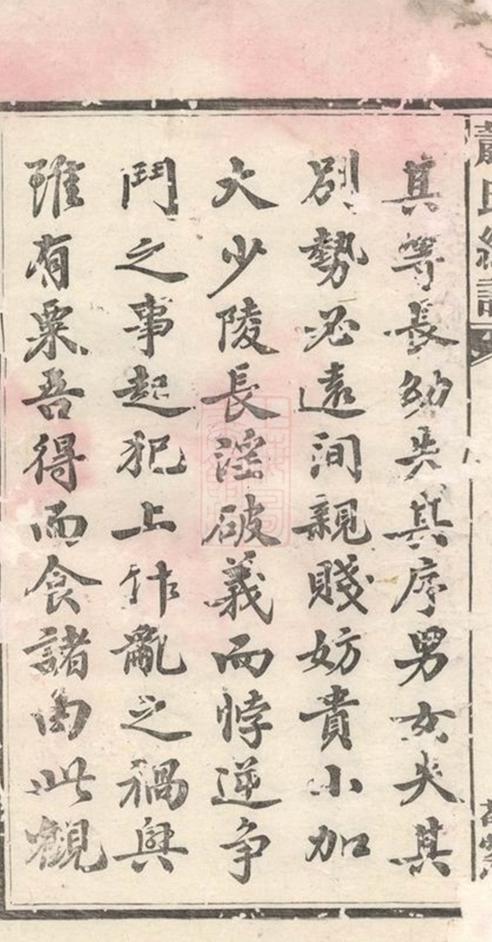 其等長幼失其序男女失其
別勢必遠间親賤妨貴小加
大少陵長淫破義而悖逆争
鬥之事起犯上作亂之禍興
雖有粟吾得而食諸由此觀